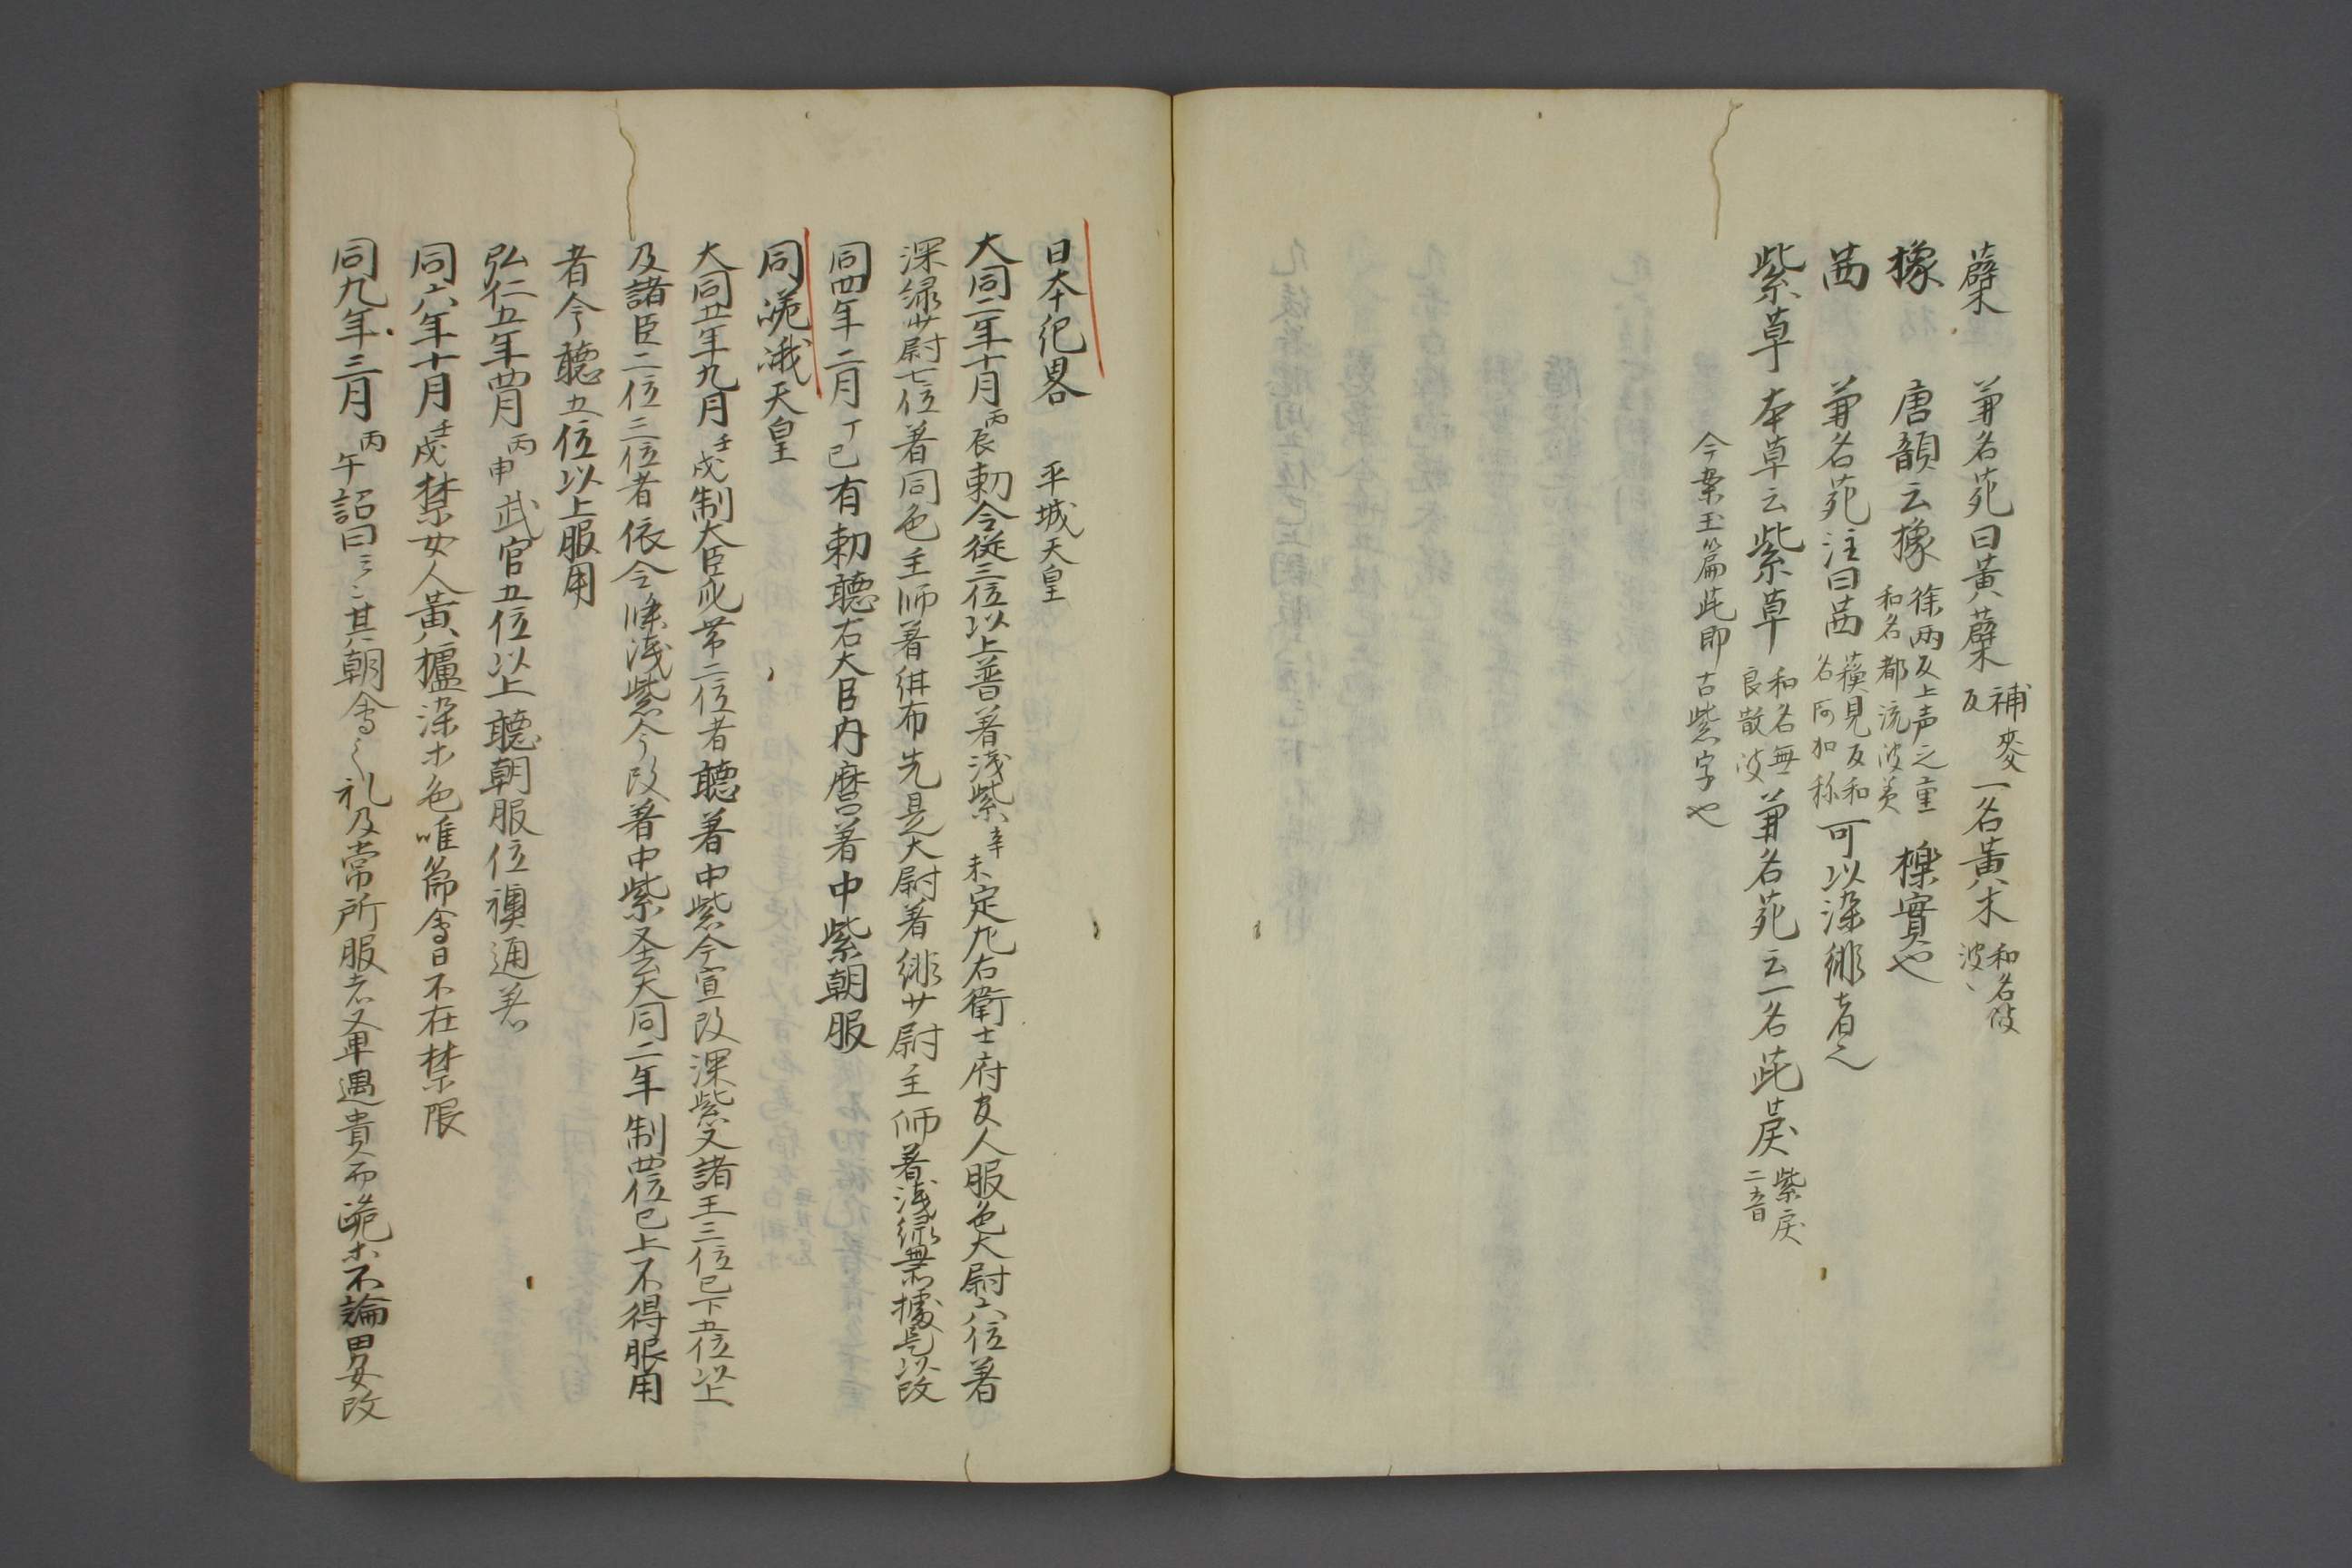 蘗木　兼名苑曰黄蘗木 補麥反 一名黄木 和名岐波〻
橡　唐韻云橡 徐両反上声之重 和名都流波美 櫟實也
茜　兼名苑注曰茜 蘓見反和名阿加称 可以染緋者也
紫草　本草云紫草 和名無良散波 兼名苑云一名茈莀 紫戻二音
今案玉篇茈即古紫字也
日本紀畧　平城天皇
大同二年十月丙辰勅令従三位以上普着浅紫辛未定九右衛士府官人服色大尉六位着
深緑廿尉七位着同色主師着紺布先是大尉着緋廿尉主師着浅緑無據是以改
同四年二月丁巳有勅聴右大臣内麿着中紫朝服
同嵯峨天皇
大同五年九月壬戌制大臣非帯二位者聴着中紫今宣改深紫又諸王三位已下五位以上
及諸臣二位三位者依令條浅紫今改着中紫又去大同二年制四位已上不得服用
者今聴五位以上服用
弘仁五年四月丙申武官五位以上聴朝服位襖通着
同六年十月壬戌禁女人黄櫨染木色唯節會日不在禁限
同九年三月丙午詔曰云〻其朝會之礼及常所服者又卑遇貴而跪木不論男女改